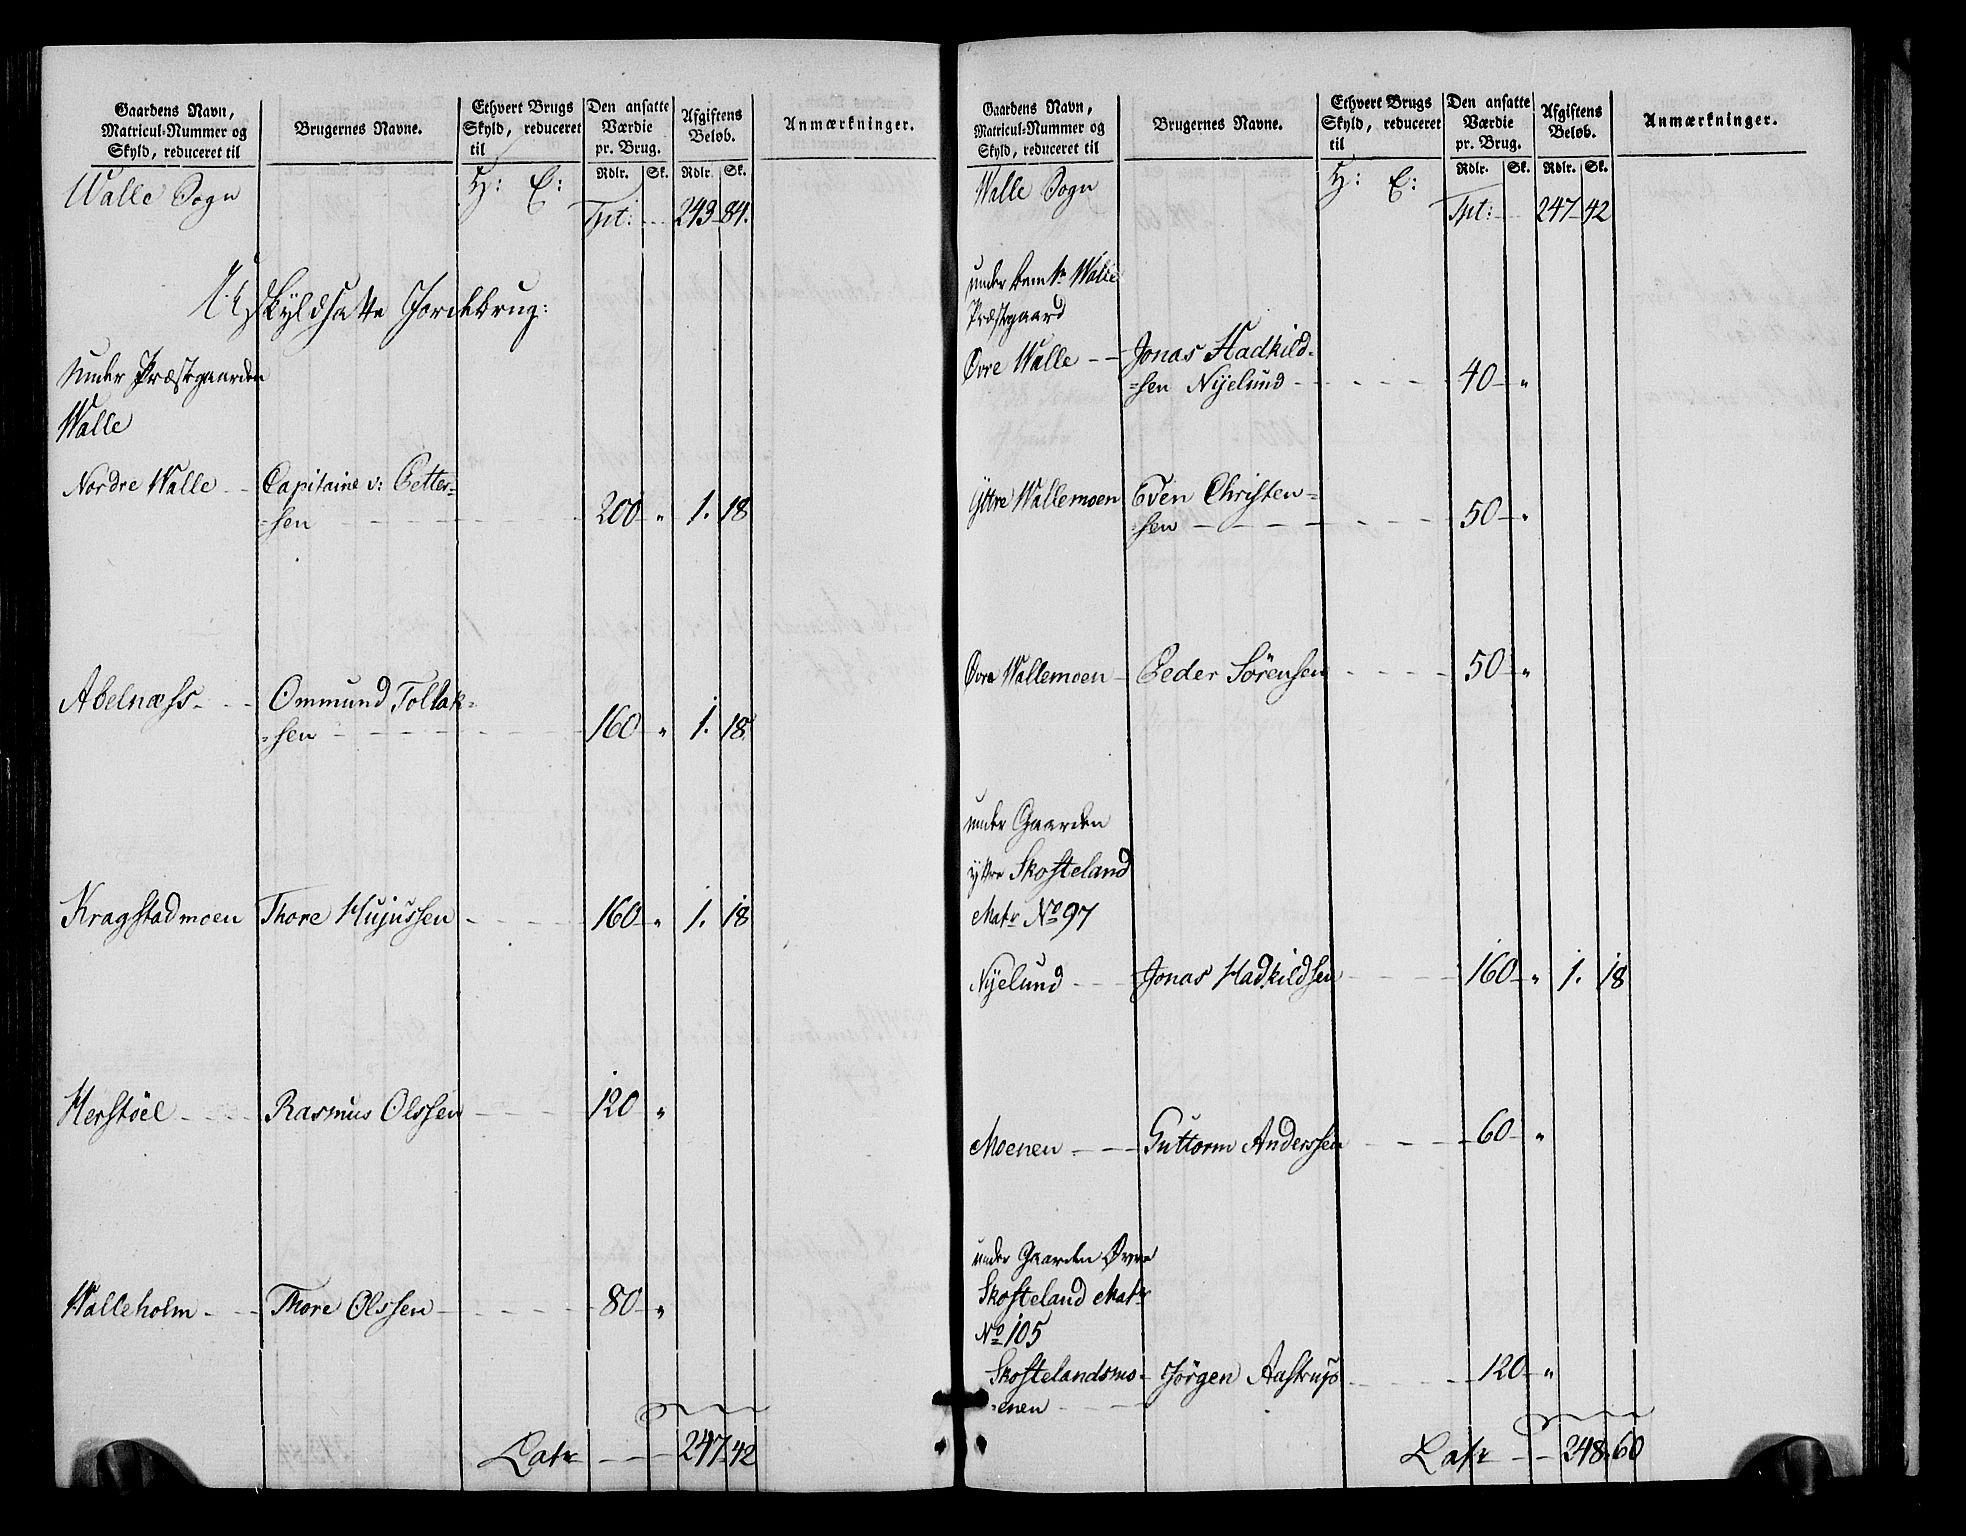 Gaardens Navn,
Matricul-Nummer og
Skyld, reduceret til
Brugernes Navne.
Ethvert Brugs
Skyld, reduceret
til
Den ansatte
Værdie
pr. Brug.
Afgiftens
Beløb.
Anmærkninger.
Rdlr. Sk. Rdlr. Sk.
Walle Sogn H: E: Tpt: 243 84.
Uskyldsatte Jordebrug:
Under Præstegaarden
Walle
Nordre Walle Capitaine v: Petter=
=sen 200 " 1. 18
Abelnæss Ommund Tollak=
=sen 160 " 1. 18.
Kragstadmoen Thore Hujussen 160 " 1. 18
Herstöel Rasmus Olssen 120 "
Walleholm Thore Olssen 80 "
Latr 247 42
Gaardens Navn,
Matricul-Nummer og
Skyld, reduceret til
Brugernes Navne.
Ethvert Brugs
Skyld, reduceret
til
Den ansatte
Værdie
pr. Brug.
Afgiftens
Beløb.
Anmærkninger.
Rdlr. Sk. Rdlr. Sk.
Walle Sogn H: E: Tpt: 247 42
under Walle
Præstgaard
Øvre Walle Jonas Hadkild=
=sen Nyelund 40 "
Yttre Wallemoen Even Christen=
=sen 50 "
Øvre Wallemoen Peder Sörensen 50 "
under Gaarden
yttre Skofteland
Matr No 97
Nyelund Jonas Hadkildsen 160 " 1. 18
Moenen Guttorm Anderssen 60 "
under Gaarden Øvre
Skofteland Matr
No 105
Skoftelandsmo- Jörgen Aastrup 120 "
=enen
Latr 248 60